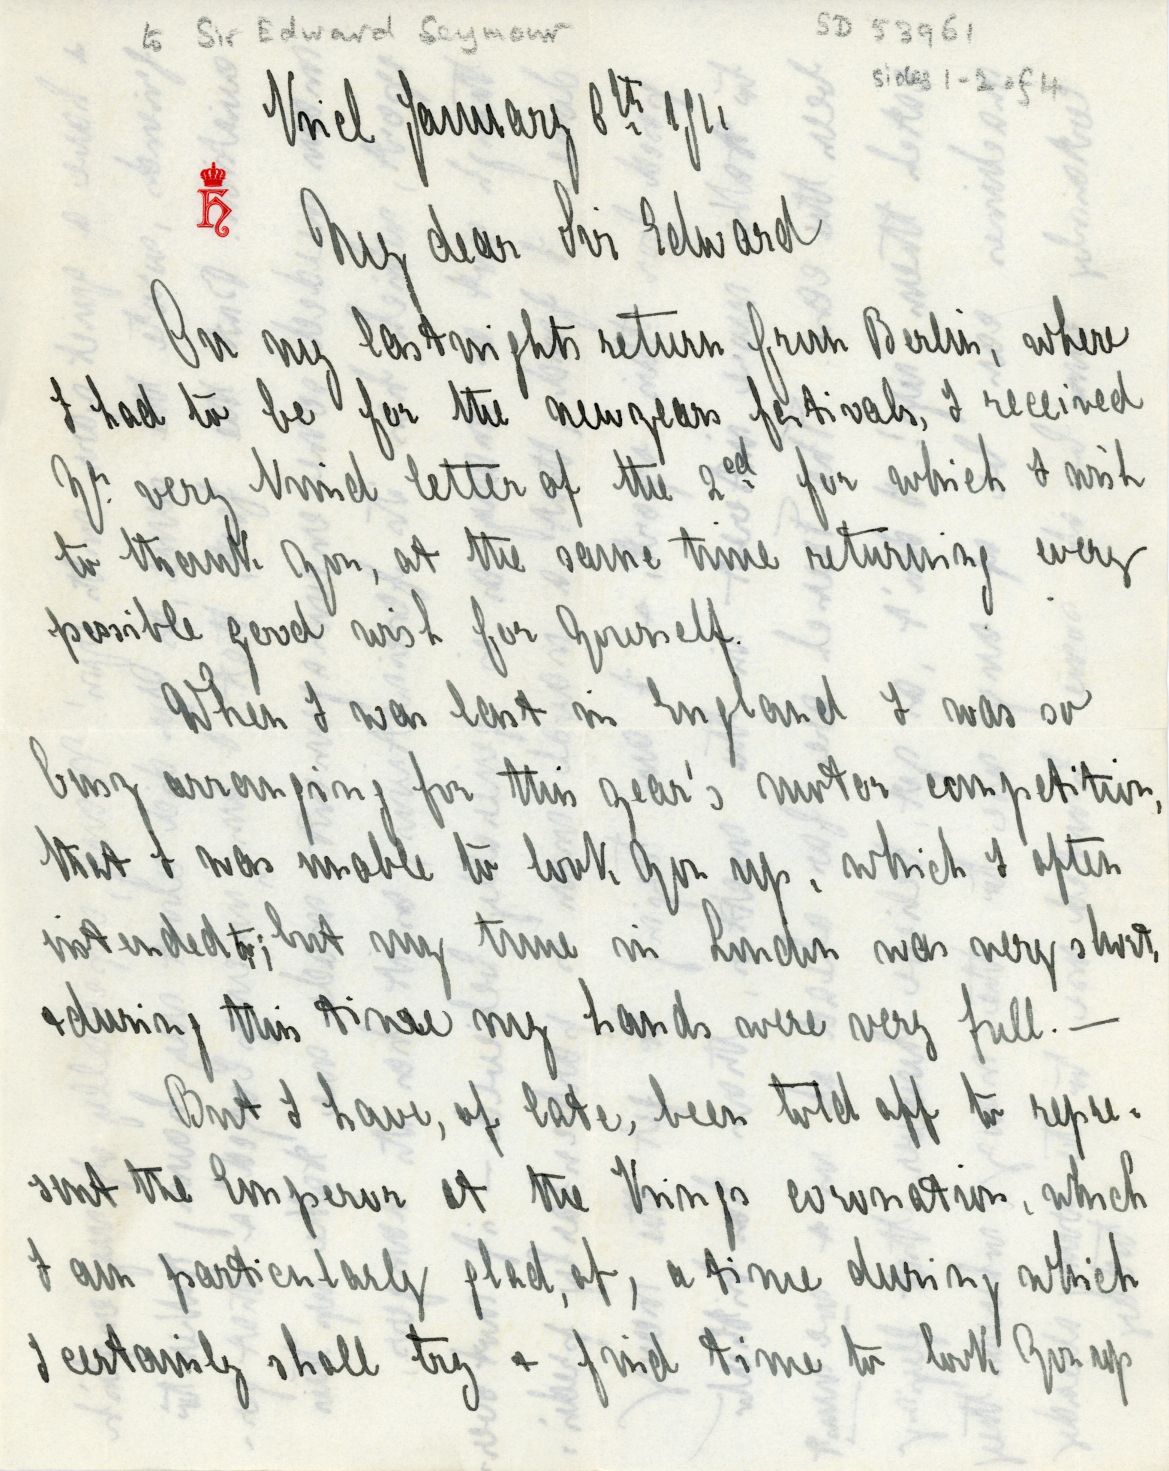 to Sir Edward Seymour
SD 53961
sides 1-2 of 4
Kiel January 8th 1911
H
My dear Sir Edward
On my last nights return from Berlin, where
I had to be for the newyears festivals, I received
Yr. very kind letter of the 2ed for which I wish
to thank You, at the same time returning every
possible good wish for Yourself.
When I was last in England I was so
busy arranging for this year's motor competition,
that I was unable to look You up, which I often
intended to; but my time in London was very short,
& during this time my hands were very full. —
But I have, of late, been told off to repre-
sent the Emperor at the Kings coronation, which
I am particularly glad, of, a time during which
I certainly shall try & find time to look You up